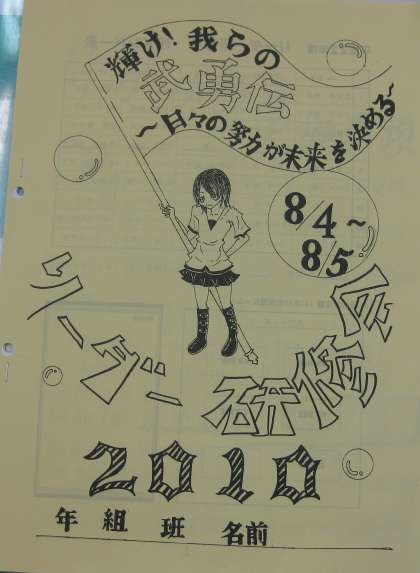 輝け！我らの
武勇伝
～日々の努力が未来を決める～
8/4～
8/5
リーダー研修会
2010
年 組 班 名前